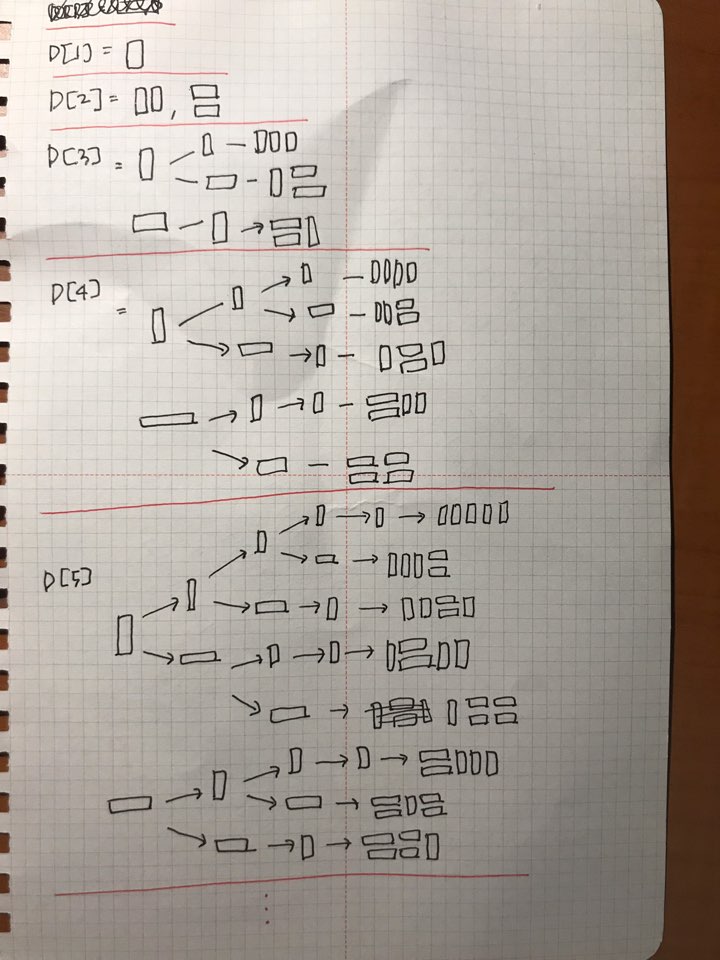 D[1] =
D[2] = ,
D[3] =
D[4] =
D[5]
⋮